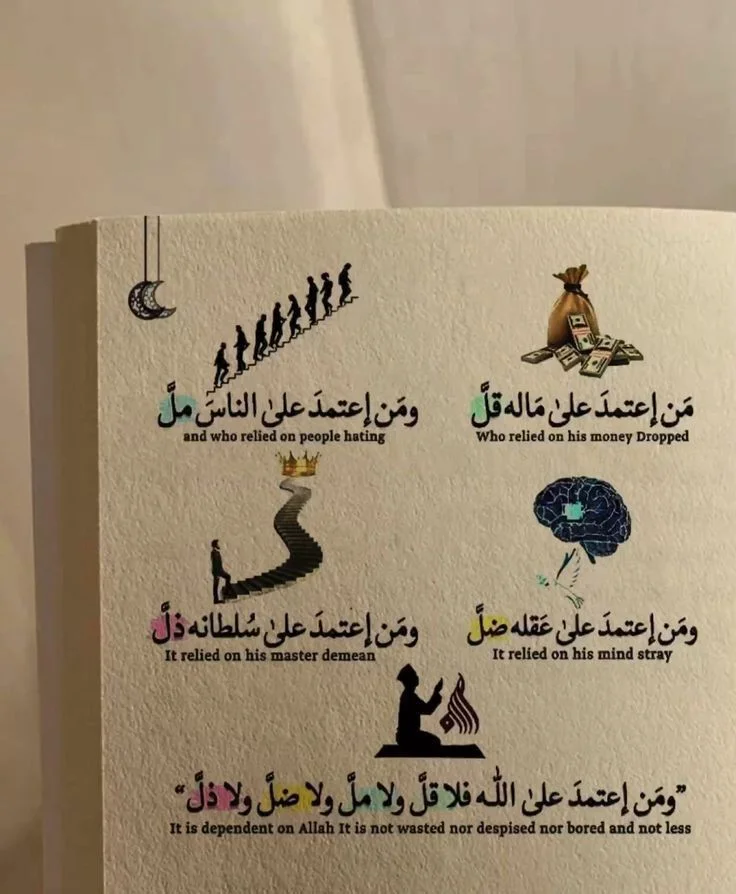 مَن إعتمدَ علىٰ مَاله قلَّ
Who relied on his money Dropped
ومَن إعتمدَ علىٰ الناسَ ملَّ
and who relied on people hating
ومَن إعتمدَ علىٰ عَقله ضلَّ
It relied on his mind stray
ومَن إعتمدَ علىٰ سُلطانه ذلَّ
It relied on his master demean
”ومَن إعتمدَ علىٰ اللّٰه فلا قلَّ ولا ملَّ ولا ضلَّ ولا ذلَّ“
It is dependent on Allah It is not wasted nor despised nor bored and not less